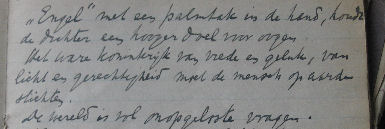 „Engel” met een palmtak in de hand, houdt
de dichter een hooger doel voor oogen.
Het ware koninkrijk van vrede en geluk, van
licht en gerechtigheid moet de mensch op aarde
stichten.
De wereld is vol onopgeloste vragen.